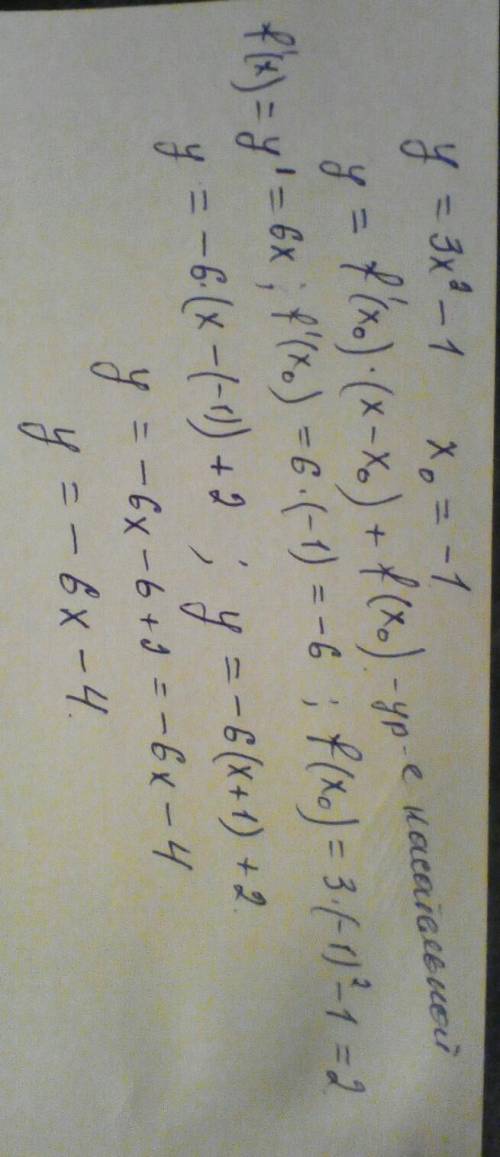 y = 3x² - 1    x₀ = -1
y = f'(x₀)·(x - x₀) + f(x₀) - ур-е касательной
f'(x) = y' = 6x ; f'(x₀) = 6·(-1) = -6 ; f(x₀) = 3·(-1)² - 1 = 2
y = -6·(x - (-1)) + 2 ; y = -6(x + 1) + 2.
y = -6x - 6 + 2 = -6x - 4
y = -6x - 4.